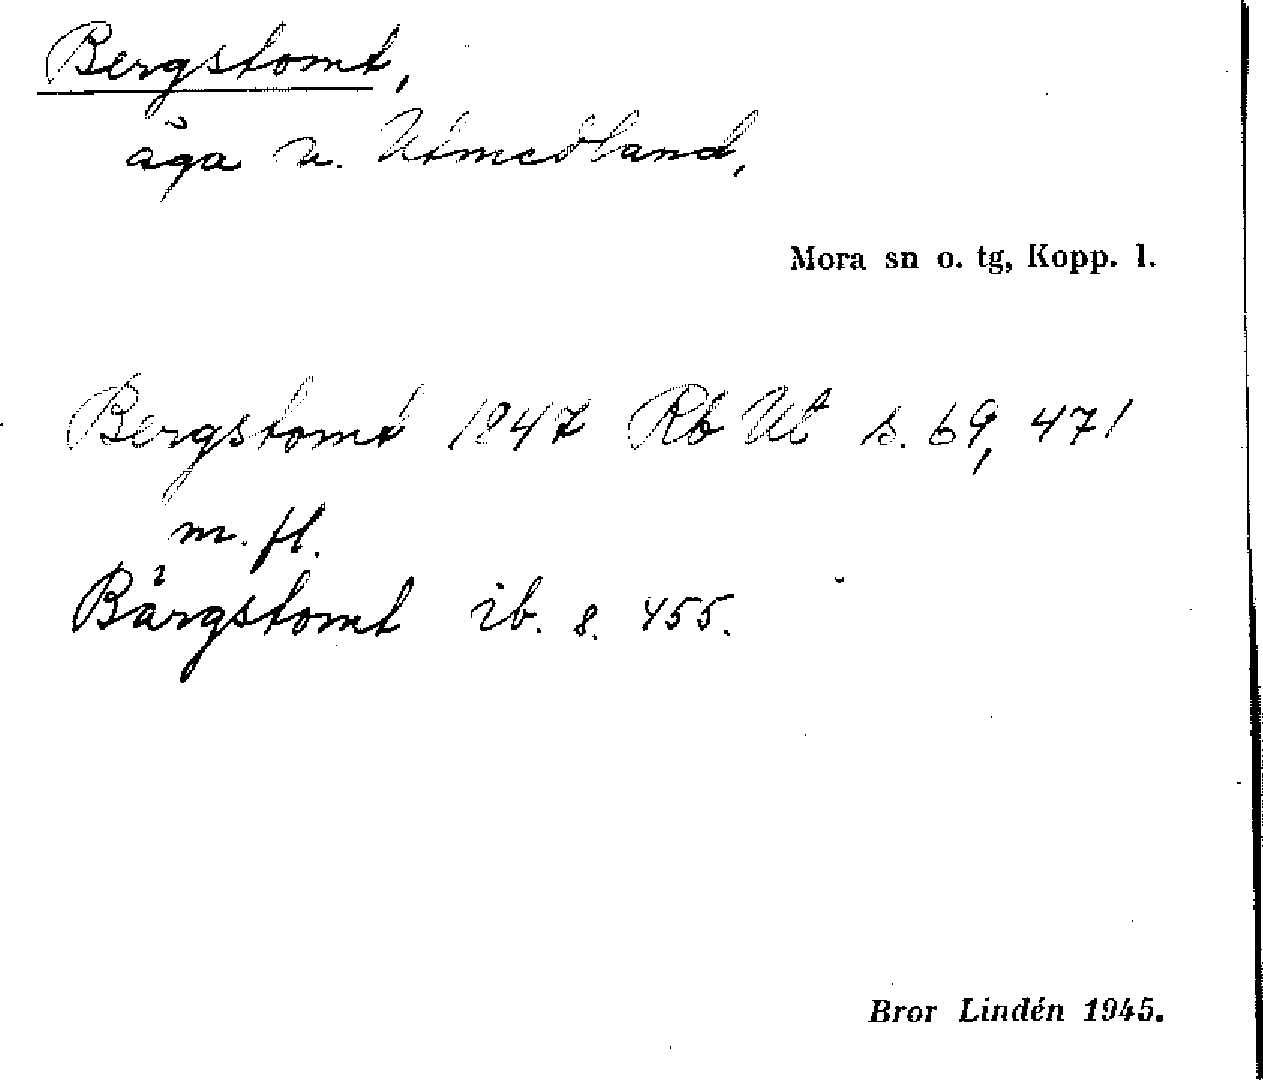 Bergstomt,
äga u. Utmedland,
Mora sn o. tg, Kopp. l.
Bergstomt 1847 Rb Ut s. 69, 471
m. fl.
Bärgstomt ib. s. 455.
Bror Lindén 1945.